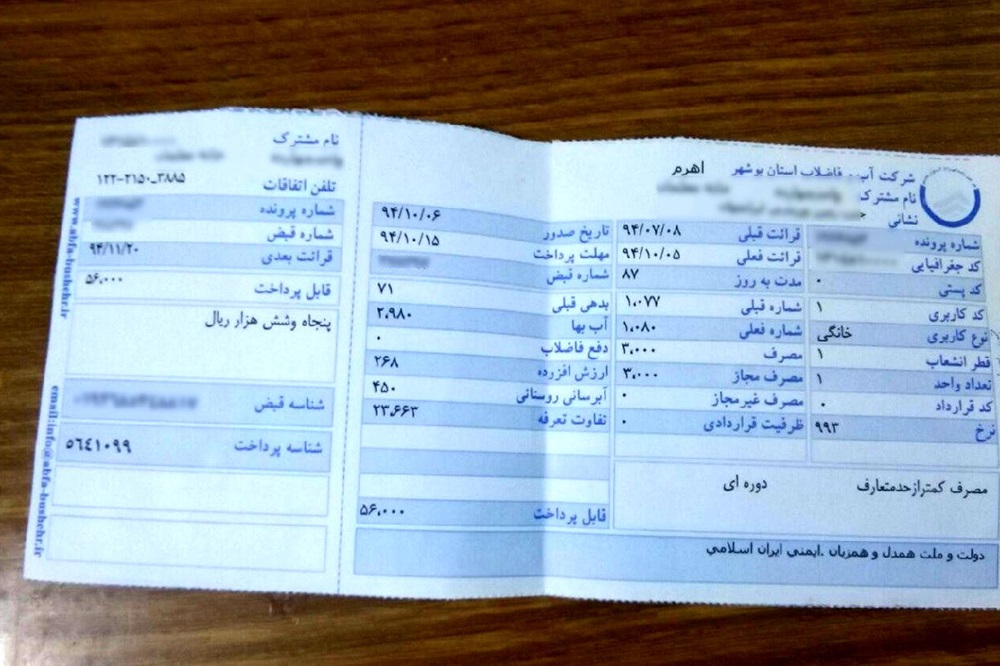 شرکت آب و فاضلاب استان بوشهر اهرم
نام مشترک
نشانی
شماره پرونده
کد جغرافیایی
کد پستی ۰
کد کاربری ۱
نوع کاربری خانگی
قطر انشعاب ۱
تعداد واحد ۱
کد قرارداد ۰
نرخ ۹۹۳
قرائت قبلی ۹۴/۰۷/۰۸
قرائت فعلی ۹۴/۱۰/۰۵
مدت به روز ۸۷
شماره قبلی ۱،۰۷۷
شماره فعلی ۱،۰۸۰
مصرف ۳،۰۰۰
مصرف مجاز ۳،۰۰۰
مصرف غیر مجاز ۰
ظرفیت قراردادی ۰
مصرف کمترازحدمتعارف دوره ای
تاریخ صدور ۹۴/۱۰/۰۶
مهلت پرداخت ۹۴/۱۰/۱۵
شماره قبض
بدهی قبلی ۷۱
آب بها ۲،۹۸۰
دفع فاضلاب ۰
ارزش افزرده ۲۶۸
آبرسانی روستائی ۴۵۰
تفاوت تعرفه ۲۳،۶۶۳
قابل پرداخت ۵۶،۰۰۰
دولت و ملت همدل و همزبان .ایمنی ایران اسلامی
نام مشترک
تلفن اتفاقات ۱۲۲-۲۱۵۰_۳۸۸۵
شماره پرونده
شماره قبض
قرائت بعدی ۹۴/۱۱/۲۰
قابل پرداخت ۵۶،۰۰۰
پنجاه وشش هزار ریال
شناسه قبض
شناسه پرداخت ٥٦٤١٠٩٩
www.abfa-bushehr.ir
email:info@abfa-bushehr.ir